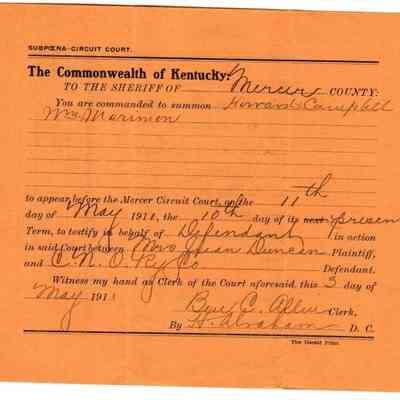 SUBPŒNA-CIRCUIT COURT.
The Commonwealth of Kentucky:
TO THE SHERIFF OF Mercer COUNTY:
You are commanded to summon Howard Campbell
Wm Marimon
to appear before the Mercer Circuit Court, on the 11th
day of May 1911, the 10th day of its next present
Term, to testify in behalf of Defendant in action
in said Court between Mrs Jean Duncan Plaintiff,
and C.N.O. Ry Co Defendant.
Witness my hand as Clerk of the Court aforesaid, this 3 day of
May 1911
Ben C. Allin Clerk,
By H. Abraham D. C.
The Herald Print.